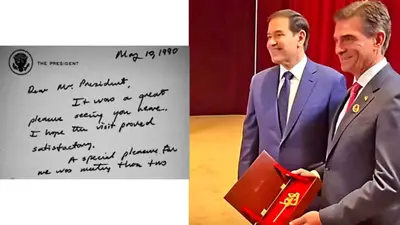 May 10, 1990
THE PRESIDENT
Dear Mr. President,
It was a great
pleasure seeing you here.
I hope the visit proved
satisfactory.
A special pleasure for
me was